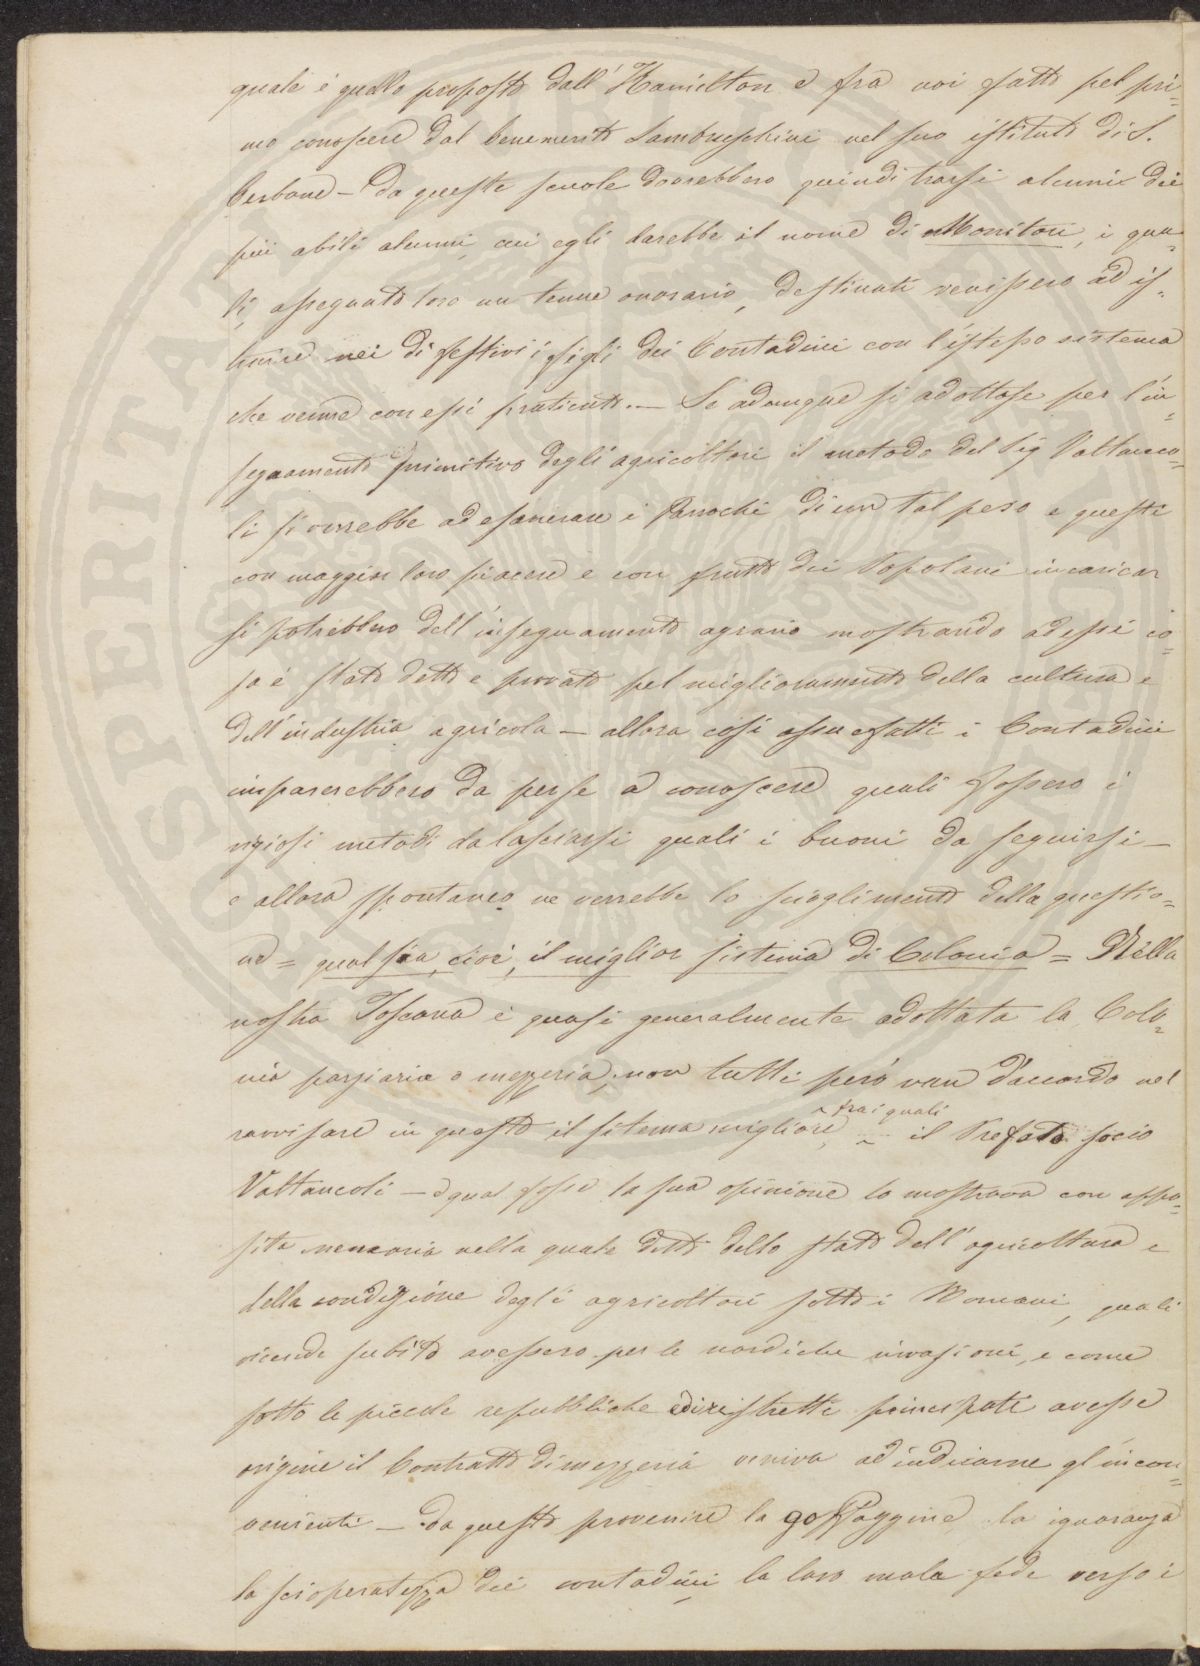 quale è quello proposto dall'Hamilton e fra noi fatto pel pri=
mo conoscere dal benemerito Lambruschini nel suo istituto di S.
Cerbone – Da queste scuole dovrebbero quindi trarsi alcuni dei
più abili alunni, cui egli darebbe il nome di Monitori, i qua=
li, assegnato loro un tenue onorario, destinati venissero ad is=
truire nei dì festivi i figli dei Contadini con l'istesso sistema
che venne con essi praticato. — Se adunque si adottasse per l'in=
segnamento primitivo degli agricoltori il metodo del Sig Valtanco=
li si verrebbe ad esonerare i Parrochi di un tal peso e questi
con maggior loro piacere e con frutto dei Popolani incaricar
si potrebbero dell'insegnamento agrario mostrando ad essi co=
sa è stato detto e provato pel miglioramento della cultura e
dell'industria agricola — allora così assuefatti i Contadini
imparerebbero da per se a conoscere quali fossero i
viziosi metodi da lasciarsi quali i buoni da seguirsi —
e allora spontaneo ne verrebbe lo scioglimento della questio=
ne = qual sia, cioè, il miglior sistema di Colonia = Nella
nostra Toscana è quasi generalmente adottata la Colo=
nia parziaria o mezzeria, non tutti però van d'accordo nel
ravvisare in questo il sitema migliore, trai quali il Prefato socio
Valtancoli — e qual fosse la sua opinione lo mostrava con appo=
sita memoria nella quale detto dello stato dell'agricoltura e
della condizione degli agricoltori sotto i Romani, quali
vicende subito avessero per le nordiche invasioni, e come
sotto le piccole repubbliche e di ristretti principati avesse
origine il Contratto di mezzeria veniva ad indicarne gl'incon=
venienti — da questo provenire la goffaggine, la ignoranza
la scioperatezza dei contadini, la loro mala fede verso i
PROSPERITAT